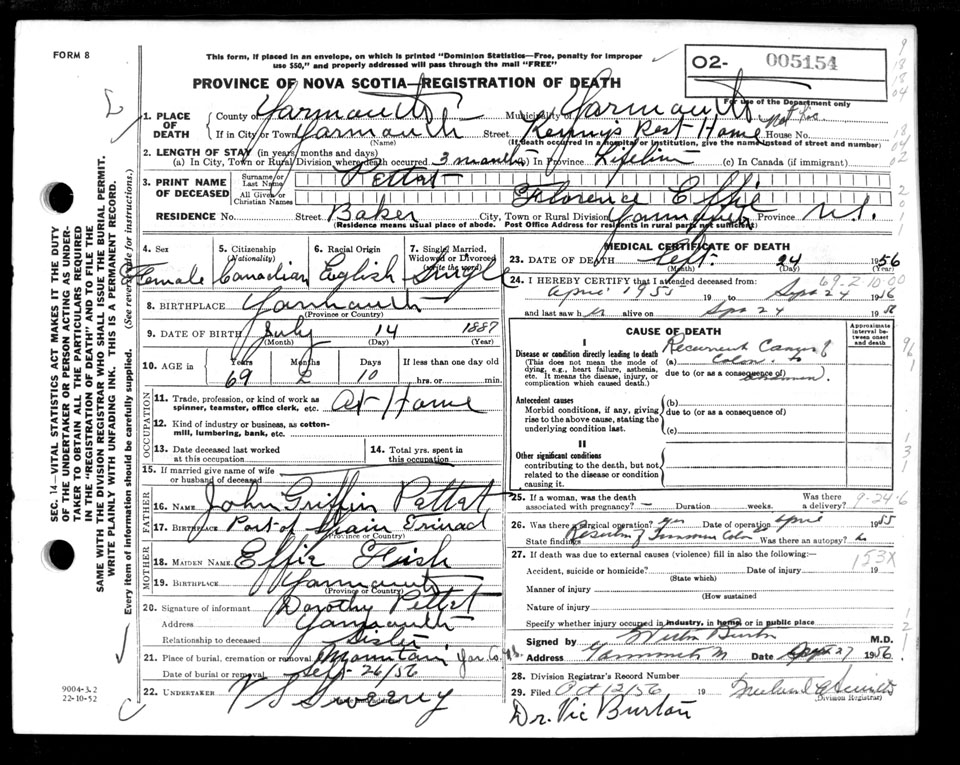 FORM 8
This form, if placed in an envelope, on which is printed "Dominion Statistics—Free, penalty for improper
use $50," and properly addressed will pass through the mail "FREE"
O2- 005154
PROVINCE OF NOVA SCOTIA—REGISTRATION OF DEATH
For use of the Department only
1. PLACE OF DEATH
County of Yarmouth Municipality Yarmouth
If in City or Town Yarmouth Street Kenny's Rest Home House No.
(Name) (If death occurred in a hospital or institution, give the name instead of street and number)
2. LENGTH OF STAY (in years, months and days)
(a) In City, Town or Rural Division where death occurred 3 months (b) In Province Lifetime (c) In Canada (if immigrant)
3. PRINT NAME OF DECEASED
Surname or Last Name Pettet
All Given or Christian Names Florence Effie
RESIDENCE No. Street Baker City, Town or Rural Division Yarmouth Province N.S.
(Residence means usual place of abode. Post Office Address for residents in rural parts not sufficient)
4. Sex 5. Citizenship (Nationality) 6. Racial Origin 7. Single, Married, Widowed or Divorced (write the word)
Female Canadian English Single
8. BIRTHPLACE Yarmouth
(Province or Country)
9. DATE OF BIRTH July 14 1887
(Month) (Day) (Year)
10. AGE in Years Months Days If less than one day old
69 2 10 hrs. or min.
OCCUPATION
11. Trade, profession, or kind of work as spinner, teamster, office clerk, etc. At Home
12. Kind of industry or business, as cotton-mill, lumbering, bank, etc.
13. Date deceased last worked at this occupation
14. Total yrs. spent in this occupation
15. If married give name of wife or husband of deceased
FATHER
16. NAME John Griffin Pettet
17. BIRTHPLACE Port of Spain Trinad
(Province or Country)
MOTHER
18. MAIDEN NAME Effie Fish
19. BIRTHPLACE Yarmouth
(Province or Country)
20. Signature of informant Dorothy Pettet
Address Yarmouth
Relationship to deceased Sister
21. Place of burial, cremation or removal Mountain Yar. Co. N.S.
Date of burial or removal Sep-26/56
22. UNDERTAKER V S Sweeny
(Name and address)
MEDICAL CERTIFICATE OF DEATH
23. DATE OF DEATH Sept. 24 1956
(Month) (Day) (Year)
69-2-10-00
24. I HEREBY CERTIFY that I attended deceased from:
April 1955 19 to Sept 24 1956
and last saw h er alive on Sept 24 1956
CAUSE OF DEATH
Approximate interval between onset and death
I
Disease or condition directly leading to death (a) Recurrent Cancer of Colon
(This does not mean the mode of dying, e.g., heart failure, asthenia, etc. It means the disease, injury, or complication which caused death.)
due to (or as a consequence of)
Antecedent causes
Morbid conditions, if any, giving rise to the above cause, stating the underlying condition last.
(b)
due to (or as a consequence of)
(c)
II
Other significant conditions
contributing to the death, but not related to the disease or condition causing it.
25. If a woman, was the death associated with pregnancy? Duration weeks. Was there a delivery?
9-24-6
26. Was there a surgical operation? yes Date of operation April 1955
State findings Was there an autopsy?
27. If death was due to external causes (violence) fill in also the following:—
153X
Accident, suicide or homicide? Date of injury 19
(State which)
Manner of injury
(How sustained)
Nature of injury
Specify whether injury occurred in industry, in home, or in public place
Signed by M.D.
Address Yarmouth Date Sept 27 1956.
28. Division Registrar's Record Number
29. Filed Oct 12/56 19
(Division Registrar)
Dr. Vic Burton
SEC. 14—VITAL STATISTICS ACT MAKES IT THE DUTY
OF THE UNDERTAKER OR PERSON ACTING AS UNDER-
TAKER TO OBTAIN ALL THE PARTICULARS REQUIRED
IN THE "REGISTRATION OF DEATH" AND TO FILE THE
SAME WITH THE DIVISION REGISTRAR WHO SHALL ISSUE THE BURIAL PERMIT.
WRITE PLAINLY WITH UNFADING INK. THIS IS A PERMANENT RECORD.
Every item of information should be carefully supplied. (See reverse side for instructions.)
9004-3.2
22-10-52